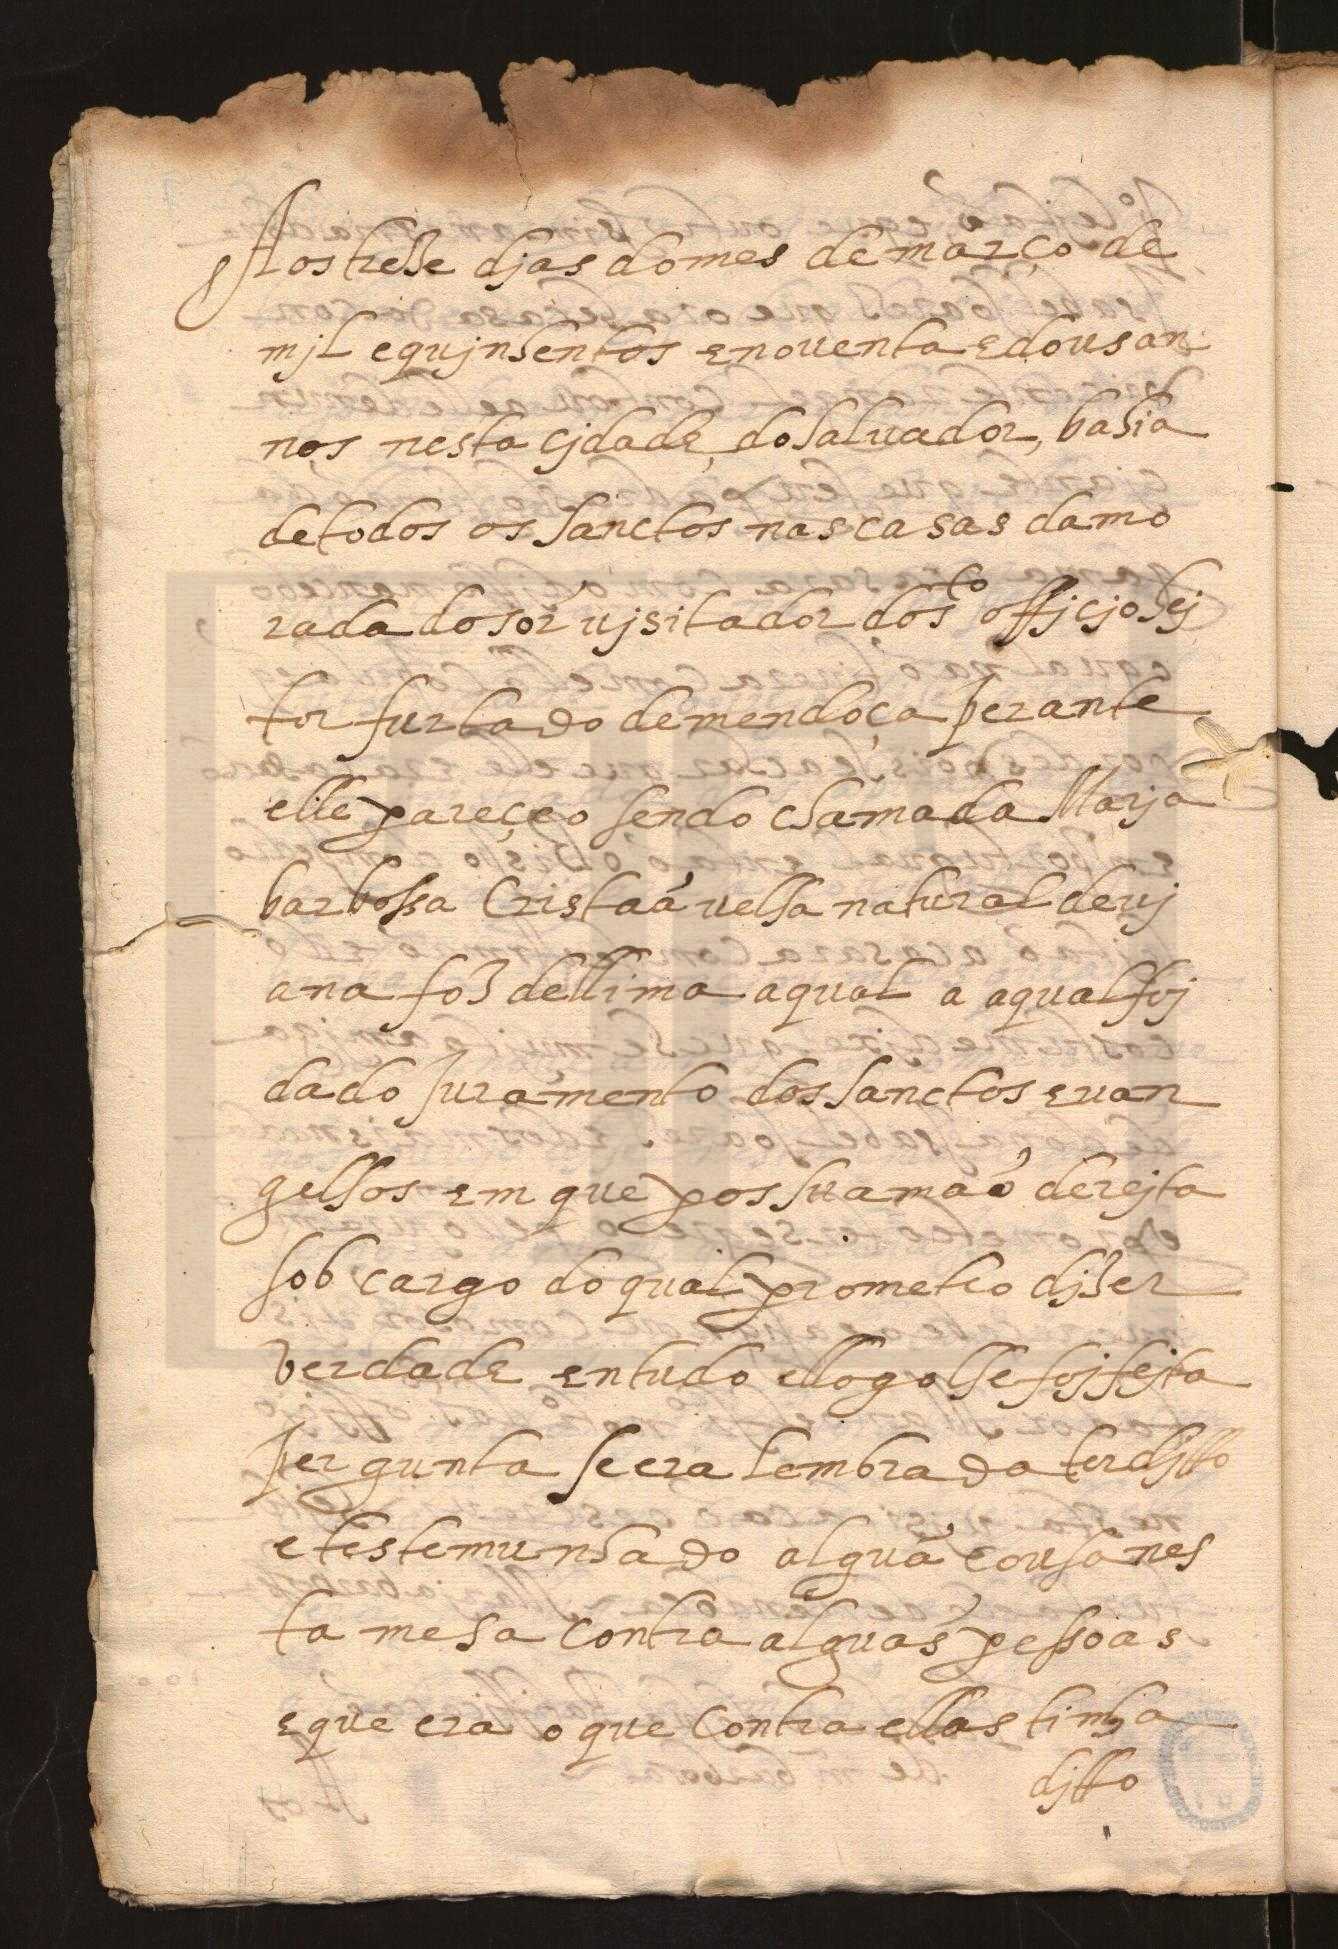 Aos treze djas do mes de março de
mjl e qujnhentos e nouenta e dous an
nos nesta cjdade do Saluador, bahia
de todos os Sanctos nas casas da mo
rada do sor ujsitador do sto offjcjo hej
tor furtado de mendoça perante
elle pareçeo sendo chamada Marja
barbossa Cristaã uelha natural de uj
ana foz de llima a qual a a qual foj
dado Juramento dos Sanctos euan
gelhos em que pos sua mão derejta
sob cargo do qual prometeo djzer
verdade en tudo e llogo lhe foj fejta
pergunta se era lembrada ter djtto
e testemunhado alguã cousa nes
ta mesa contra alguãs pessoas
e que era o que contra ellas tinha
djtto